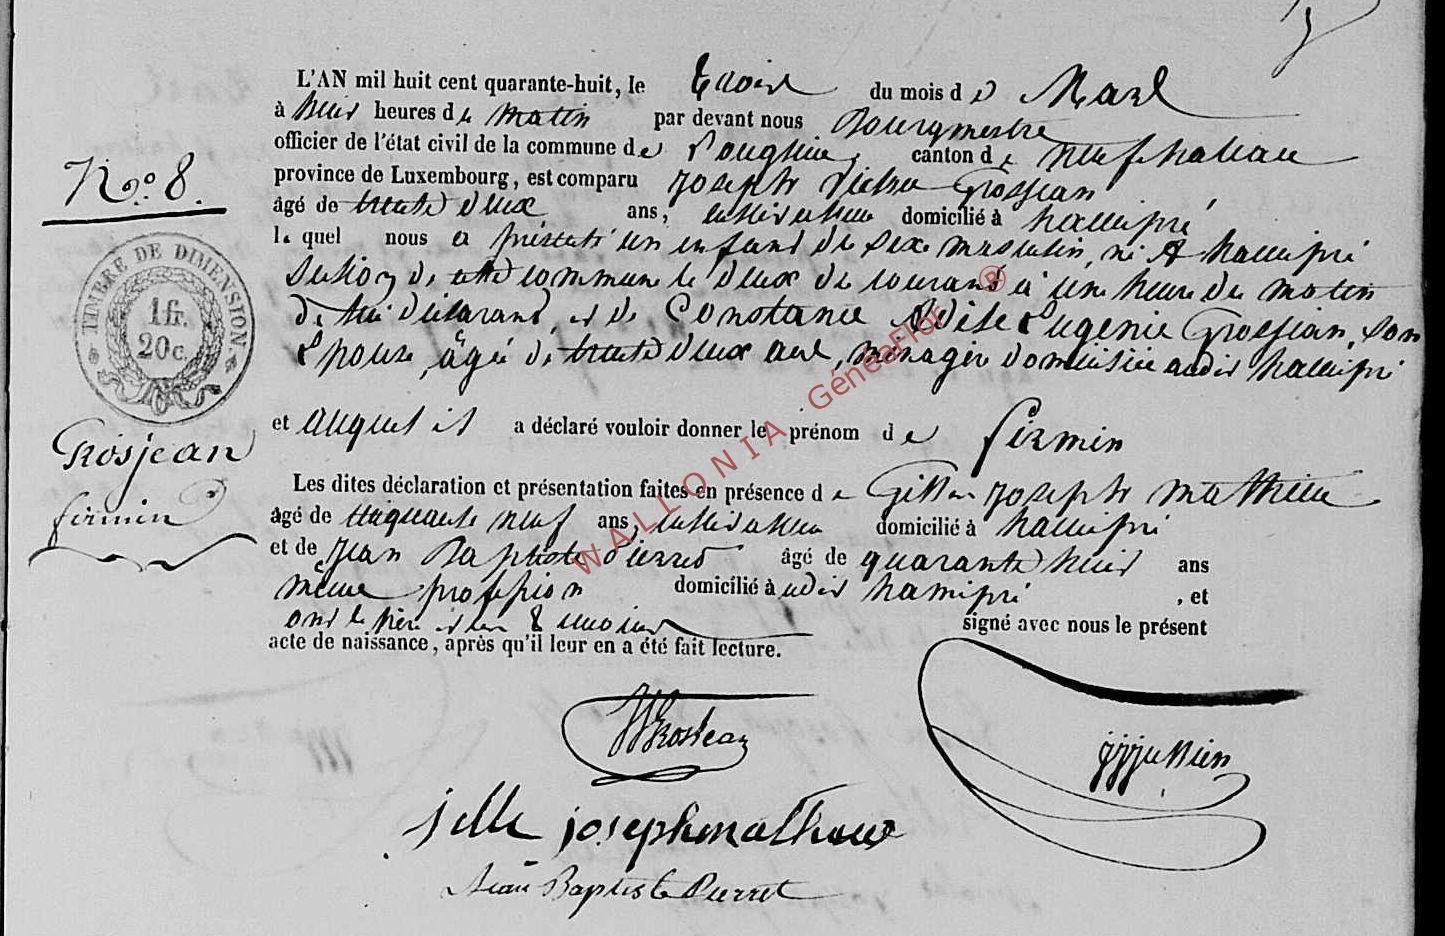 L'AN mil huit cent quarante-huit, le trois du mois de Mars
à huit heures de matin par devant nous Bourgmestre
officier de l'état civil de la commune de canton de neufchateau
province de Luxembourg, est comparu Joseph Grosjean
N.o 8.
âgé de trente deux ans, cultivateur domicilié à hamipré
le quel nous a présenté un enfant de sexe masculin, né à hamipré
section de cette commune le deux de courant à une heure du matin
de lui déclarant, et de Constance Eugenie Grosjean, son
Epouse, âgée de trente deux ans, menagère domiciliée audit hamipré
TIMBRE DE DIMENSION
1 fr.
20 c.
et auquel il a déclaré vouloir donner le prénom de firmin
Grosjean
firmin
Les dites déclaration et présentation faites en présence de Joseph mathieu
âgé de cinquante neuf ans, cultivateur domicilié à hamipré
et de Jean Baptiste Pierret âgé de quarante huit ans
même profession domicilié à audit hamipré , et
ont le père et les témoins signé avec nous le présent
acte de naissance, après qu'il leur en a été fait lecture.
Grosjean
josephmathieu
Jean Baptiste Pierret
WALLONIA GénéaFlor ®